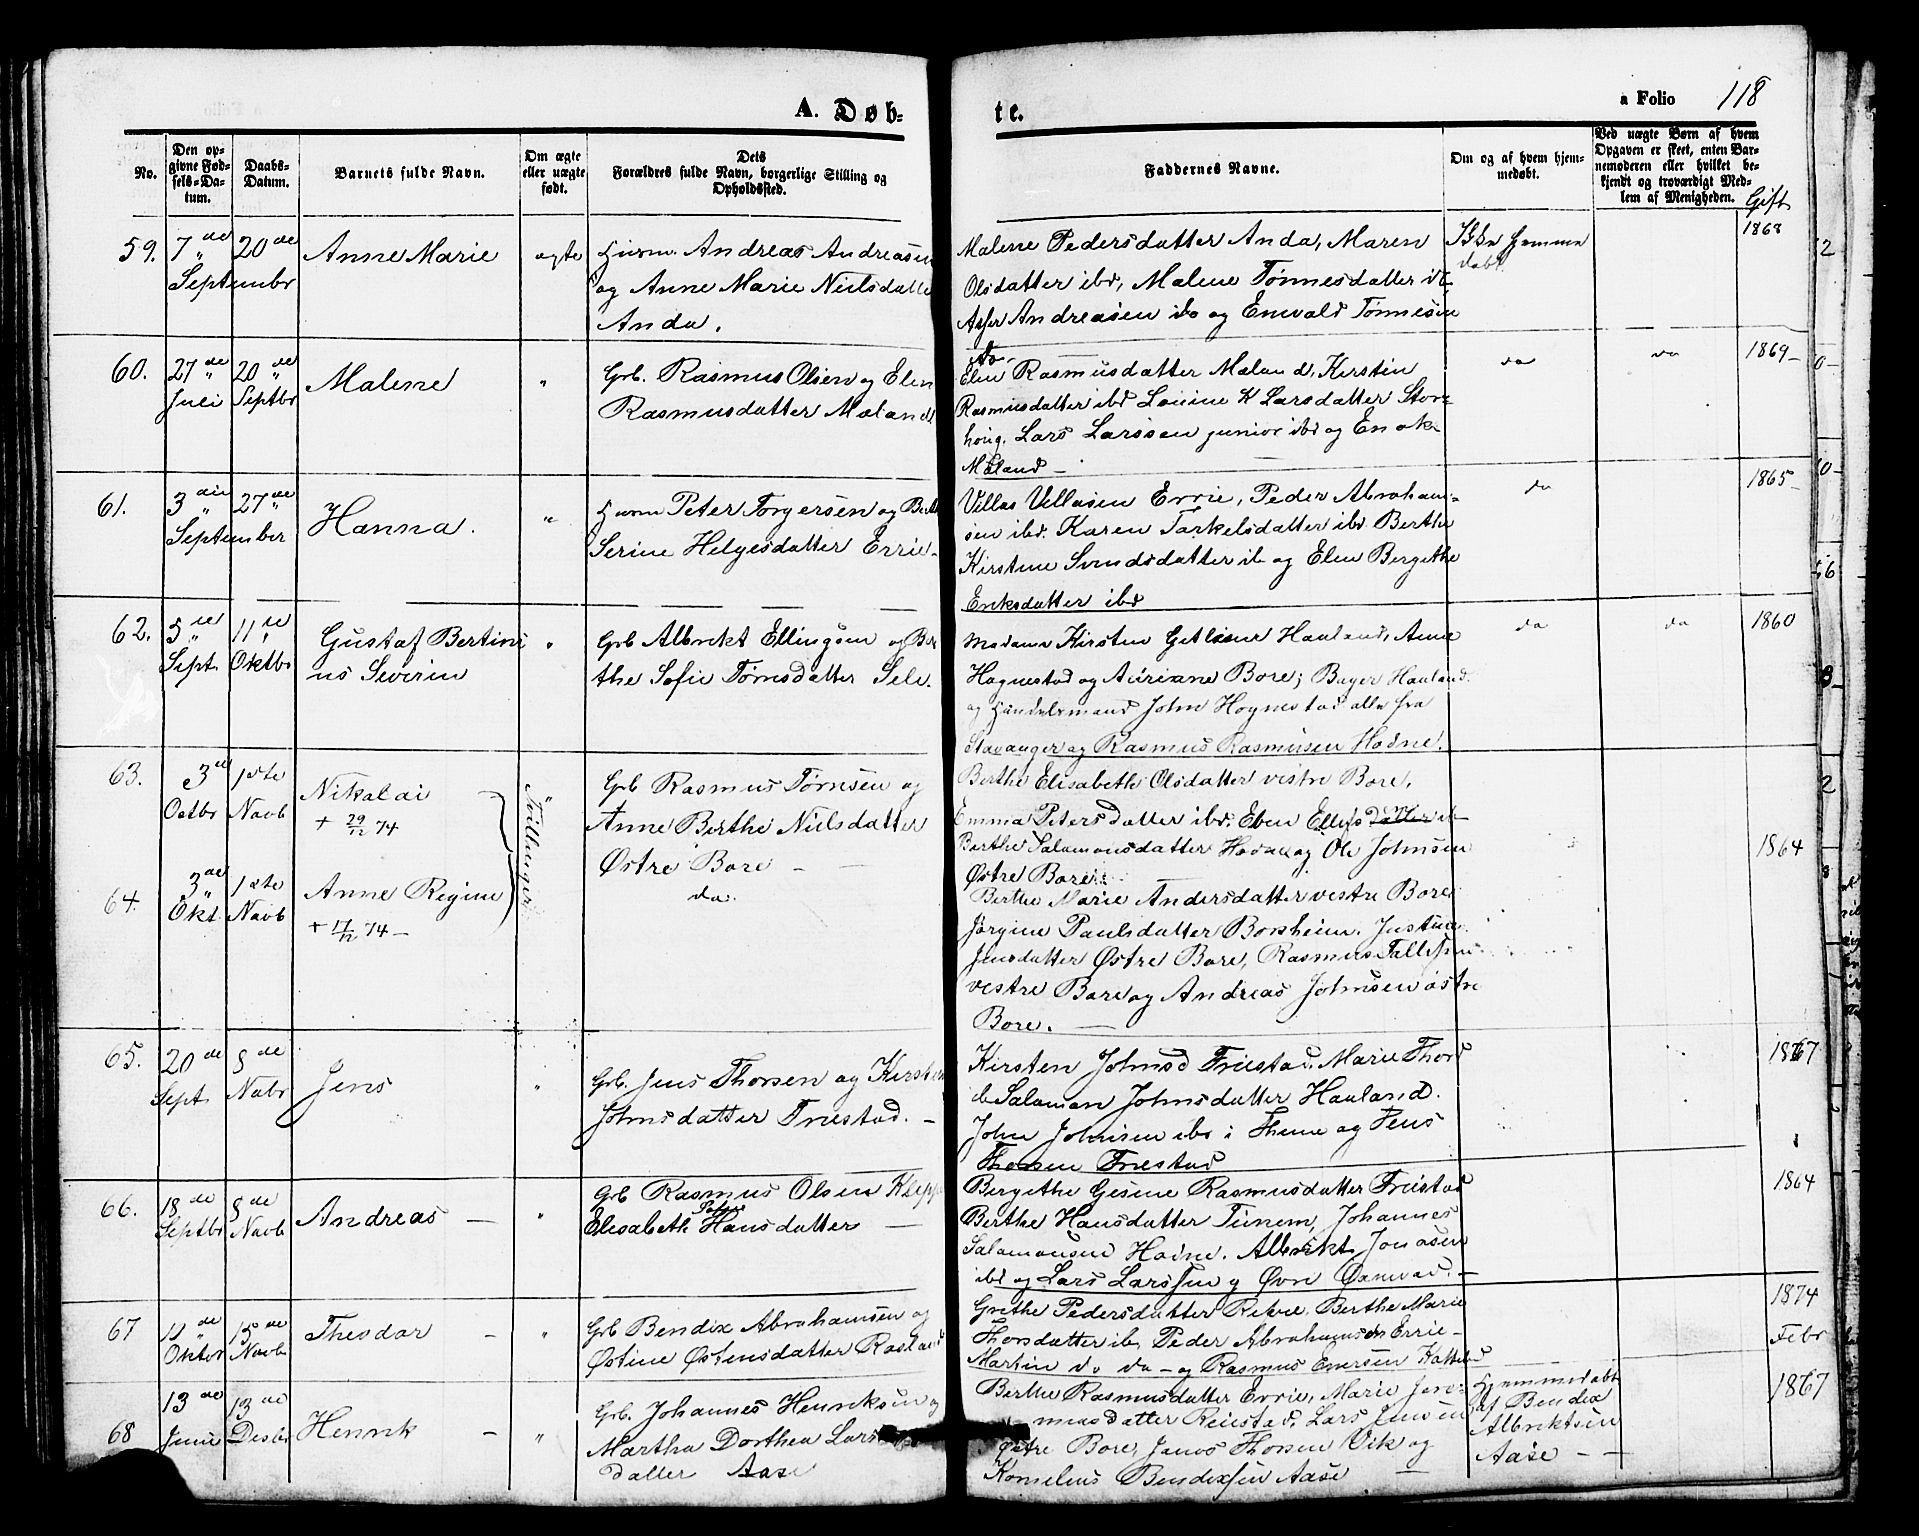 A. Døb-
te.
a Folio 118
No.
Den op-
givne Fød-
sels-Da-
tum.
Daabs-
Datum.
Barnets fulde Navn.
Om ægte
eller uægte
født.
Dets
Forældres fulde Navn, borgerlige Stilling og
Opholdssted.
Faddernes Navne.
Om og af hvem hjem-
medøbt.
Ved uægte Børn af hvem
Opgaven er skeet, enten Bar-
nemoderen eller hvilket be-
kjendt og troværdigt Med-
lem af Menigheden.
Gift
59.
7de
"
Septembr
20de
Anne Marie
ægte
Andreas Andreasen
og Anne Marie Nielsdatter
Anda.
Malene Pedersdatter Anda, Maren
Olsdatter ibd, Malene Tønnesdatter
Asser Andreasen ibd og Enwald Tønnesen
ibd.
Ikke hjemme
døbt
1868
60.
27de
"
Juli
20de
"
Septbr
Malene
"
Grb. Rasmus Olsen og Elen
Rasmusdatter Mæland.
Elen Rasmusdatter Mæland, Kirstin
Rasmusdatter ibd Larsdatter Stor-
houg. Lars Larssen junior ibd og Enok
Mæland -
do
do
1869-
61.
3die
"
September
27de
"
Hanna.
"
Peter Torgersen og
Serine Helgesdatter Errie-
Villas Villasen Errie, Peder Abraham-
sen ibd. Karen Tarkelsdatter ibd Berthe
Kirstine Svendsdatter ib og Elen Bergithe
Eriksdatter ibd
do
1865-
62.
5te
"
Sept.
11te
"
Oktbr
Gustaf Bertini
us Severin
"
Grb Albrekt Ellingsen og Ber
the Sofie Tørnsdatter Sele.
Madame Kirsten Haaland, Anne
Hognestad og Adriane Bore; Haaland
og Handelsmand John Hognestad alle fra
Stavanger og Rasmus Rasmusen Hodne.
do
do
1860
63.
3de
Octbr
1ste
Novb
Nikolai
+ 29/12 74
"
Tvillinger
Grb Rasmus Tørnsen og
Anne Berthe Nielsdatter
Østre Bore -
Berthe Elisabeth Olsdatter vestre Bore,
Emma Petersdatter ibd.
Berthe Salamonsdatter Hodne og Ole Johnsen
Østre Bore
1864
64.
3de
"
Okt.
1ste
Novb
Anne Regine
+ 17/12 74 -
do.
Berthe Marie Andersdatter vestre Bore
Jørgine Paulsdatter Borsheim. Justine
Jensdatter Østre Bore, Rasmus
vestre Bore og Andreas Johnsen østre
Bore. -
65.
20de
Sept.
8de
Novbr
Jens
"
Grb. Jens Thorsen og Kirsten
Johnsdatter Friestad. -
Kirsten Johnsd Friestad. Marie Thors
ib Salaman Johnsdatter Haaland.
John Johnsen ibd i Thime og Jens
Thorsen Friestad
1867
66.
18de
Septbr
8de
Novb
Andreas -
"
Grb Rasmus Olsen Klepp
Elisabeth Hansdatter -
Bergithe Gesine Rasmusdatter Friestad
Berthe Hansdatter Tunem, Johannes
Salamonsen Hodne. Albrikt Jonasen
ibd og Lars Larssen Øvre
1864
67
11de
"
Oktbr
15de
Novb
Theodor -
"
Grb Bendix Abrahamsen og
Østine Østensdatter
Grethe Pedersdatter Berthe Marie
Thorsdatter ib. Peder Abrahamsen Errie-
Martin do do- og Rasmus
1874
Febr
68
13de
Juni
13de
Desbr
Henrik -
"
Grb. Johannes Henriksen og
Martha Dorthea Lars
datter Aase
Berthe Rasmusdatter Errie, Marie Jere-
miasdatter Reiestad. Lars Jensen
østre Bore, Thorsen Vik og
Kornelius Bendixsen Aase -
Hjemmedøbt
af Bendix
Albriktsen
Aase - -
1867